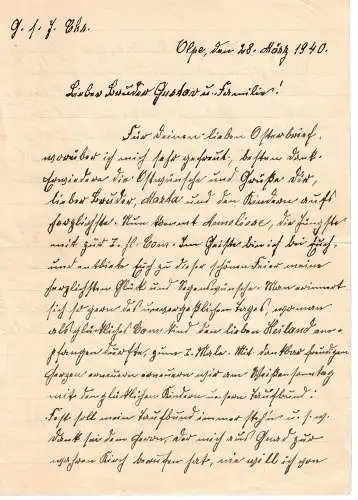 G. s. J. Chr.
Olpe, den 28. März 1940.
Lieber Bruder Gustav u. Familie!
Für deinen lieben Osterbrief,
worüber ich mich sehr gefreut, besten Dank.
Erwiedere die Ostwünsche und Grüße Dir,
lieber Bruder, Marta und den Kindern aufs
herzlichste. Nun kommt Annoliese, die Jüngste
mit zur I. hl. Com. Im Geiste bin ich bei Euch
und entbiete Euch zu dieser schönen Feier meine
herzlichsten Glück und Segenswünsche. Man erinnert
sich so gern des unvergeßlichen Tages, wo man
als glückliches Com. Kind den lieben Heiland em-
pfangen durfte, zum I. Male. Mit dankbar freudigem
Herzen erneuern wir am Weißensonntag
mit den glücklichen Kindern unsern Taufbund:
Fest soll mein Taufbund immer stehn u. s. w.
Dank sei dem Herrn, der mich aus Gnad zur
wahren Kirch berufen hat, nie will ich von